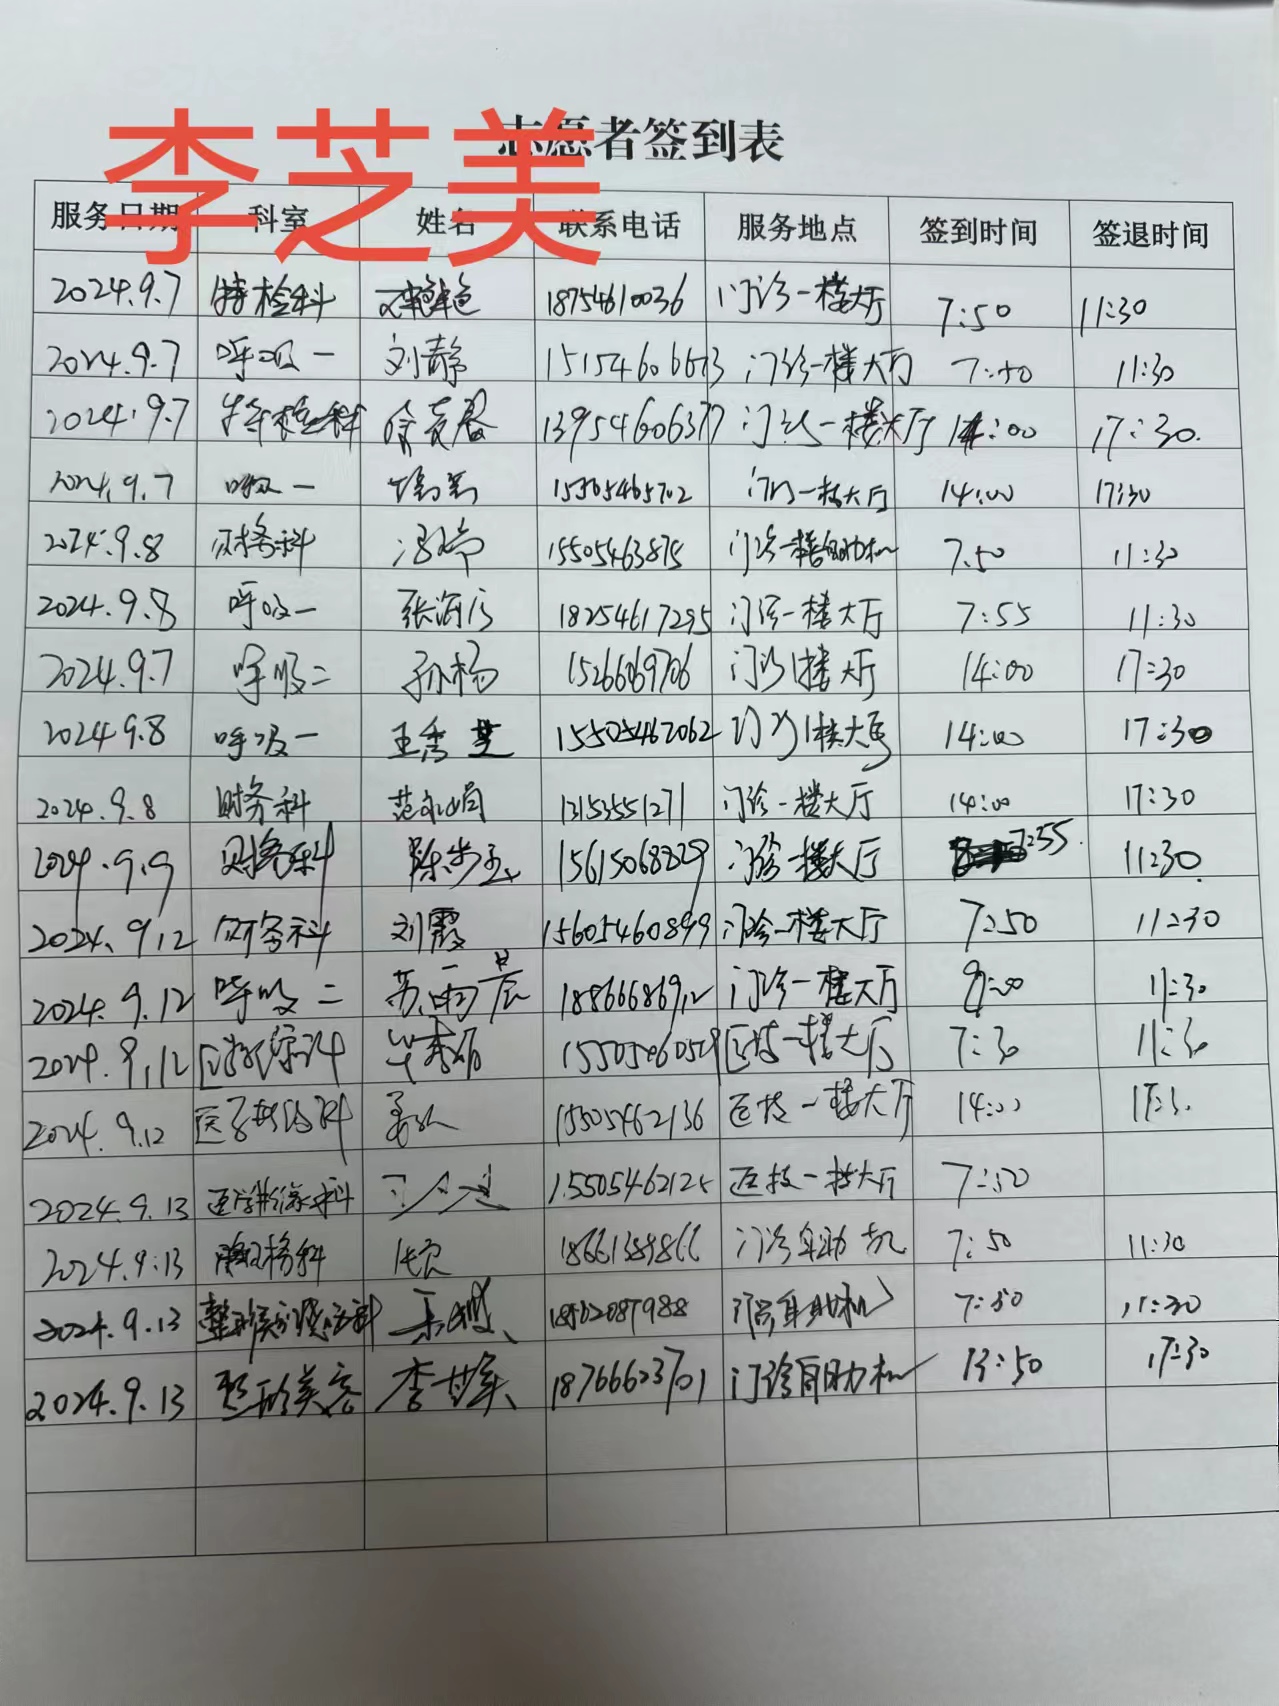 李芝美
志愿者签到表
服务日期 科室 姓名 联系电话 服务地点 签到时间 签退时间
2024.9.7 特检科 18754610036 门诊一楼大厅 7:50 11:30
2024.9.7 呼吸一 刘静 15154606673 门诊一楼大厅 7:50 11:30
2024.9.7 特检科 13954606377 门诊一楼大厅 14:00 17:30.
2024.9.7 呼吸一 15305465702 门诊一楼大厅 14:00 17:30
2024.9.8 财务科 冯帅 15505463875 门诊一楼自助机 7.50 11:30
2024.9.8 呼吸一 张海 18254617295 门诊一楼大厅 7:55 11:30
2024.9.7 呼吸二 孙杨 15266869706 门诊1楼大厅 14:00 17:30
2024.9.8 呼吸一 王秀芝 15505467062 门诊1楼大厅 14:00 17:30
2024.9.8 财务科 范永娟 13153551271 门诊一楼大厅 14:00 17:30
2024.9.9 财务科 陈步玉 15615068829 门诊一楼大厅 7:55 11:30
2024.9.12 财务科 刘霞 15605460899 门诊一楼大厅 7:50 11:30
2024.9.12 呼吸二 苏雨晨 门诊一楼大厅 8:00 11:30
2024.9.12 医学影像科 医技一楼大厅 7:30 11:30
2024.9.12 医学影像科 15505462136 医技一楼大厅 14:00
2024.9.13 医学影像科 15505462125 医技一楼大厅 7:50
2024.9.13 门诊自助机 7:50 11:30
2024.9.13 门诊自助机 7:50 11:30
2024.9.13 整形美容 李芝美 18766623701 门诊自助机 13:50 17:30